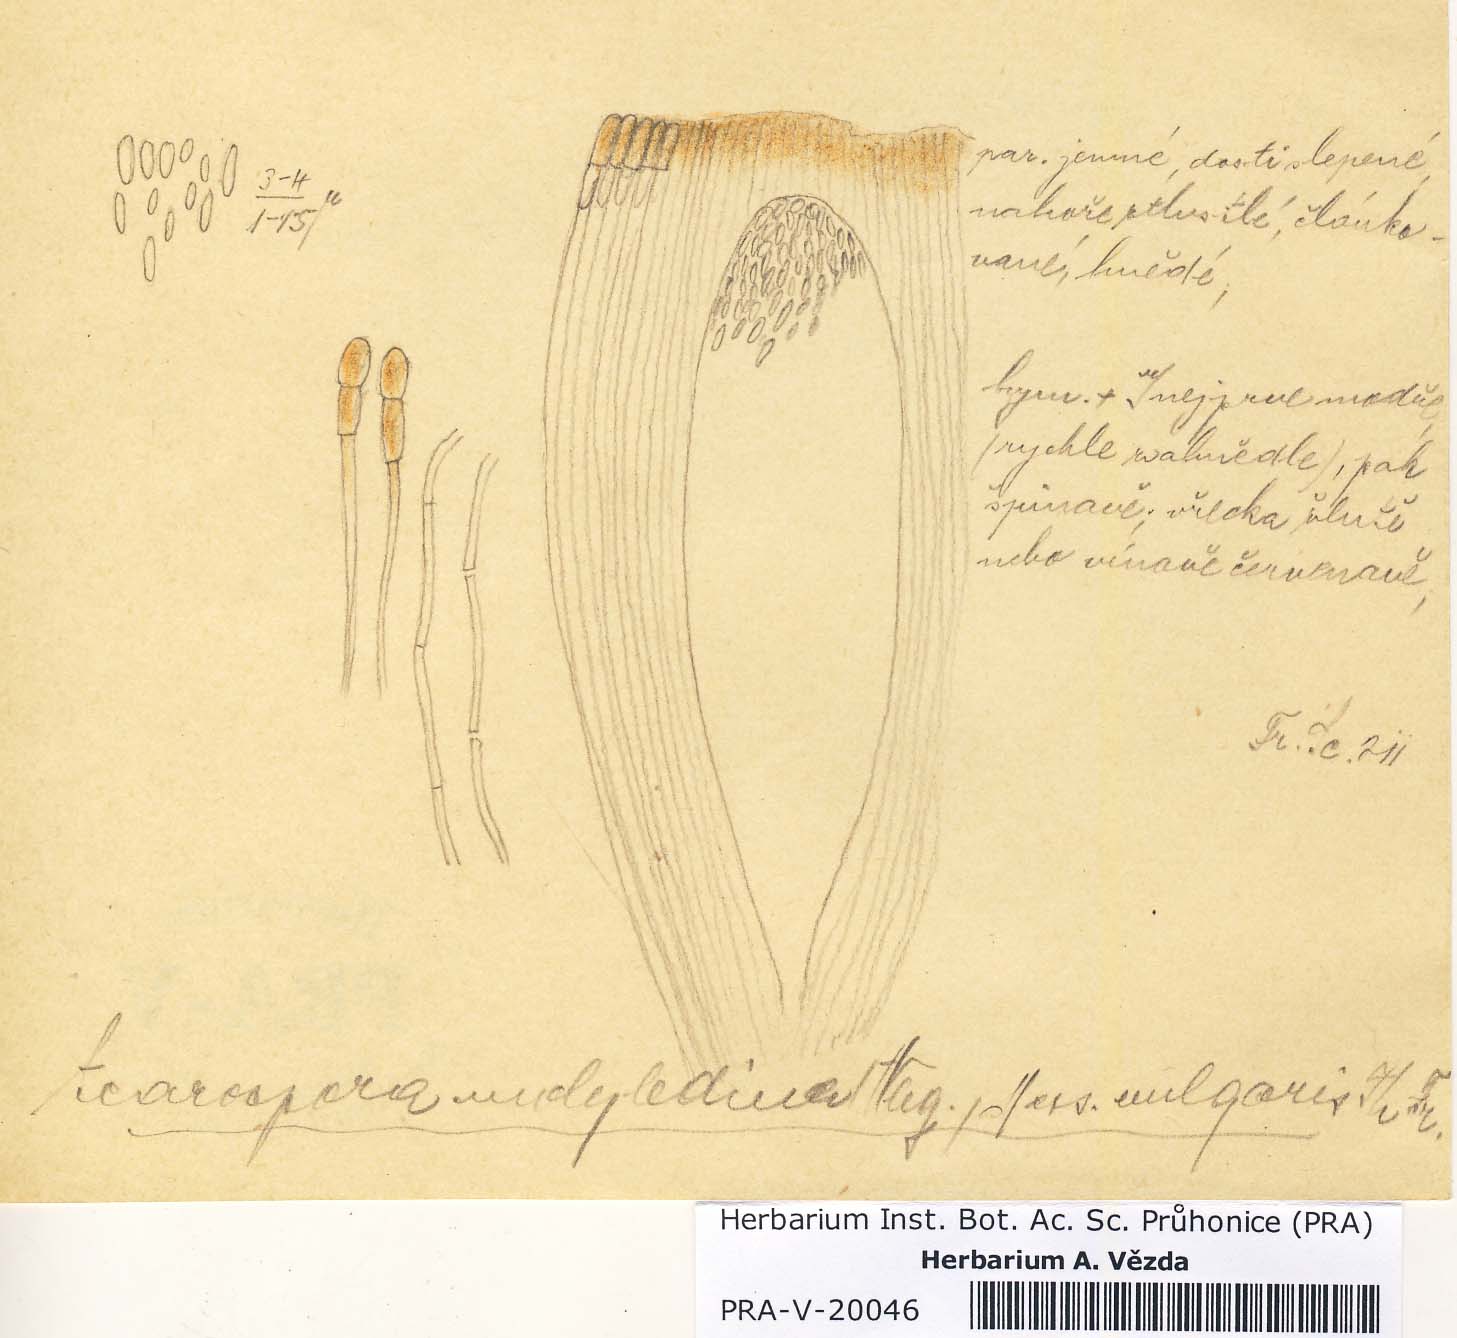 3-4
1-1·5 µ
par. jemné, dosti slepené,
nahoře ztlustlé, článko-
vané, hnědé,
hym. + J nejprve modře,
(rychle zahnědle), pak
špinavě; vřecka
nebo vínavě červenavě,
Fr. 211
carospora Mass. vulgaris
Herbarium Inst. Bot. Ac. Sc. Průhonice (PRA)
Herbarium A. Vězda
PRA-V-20046